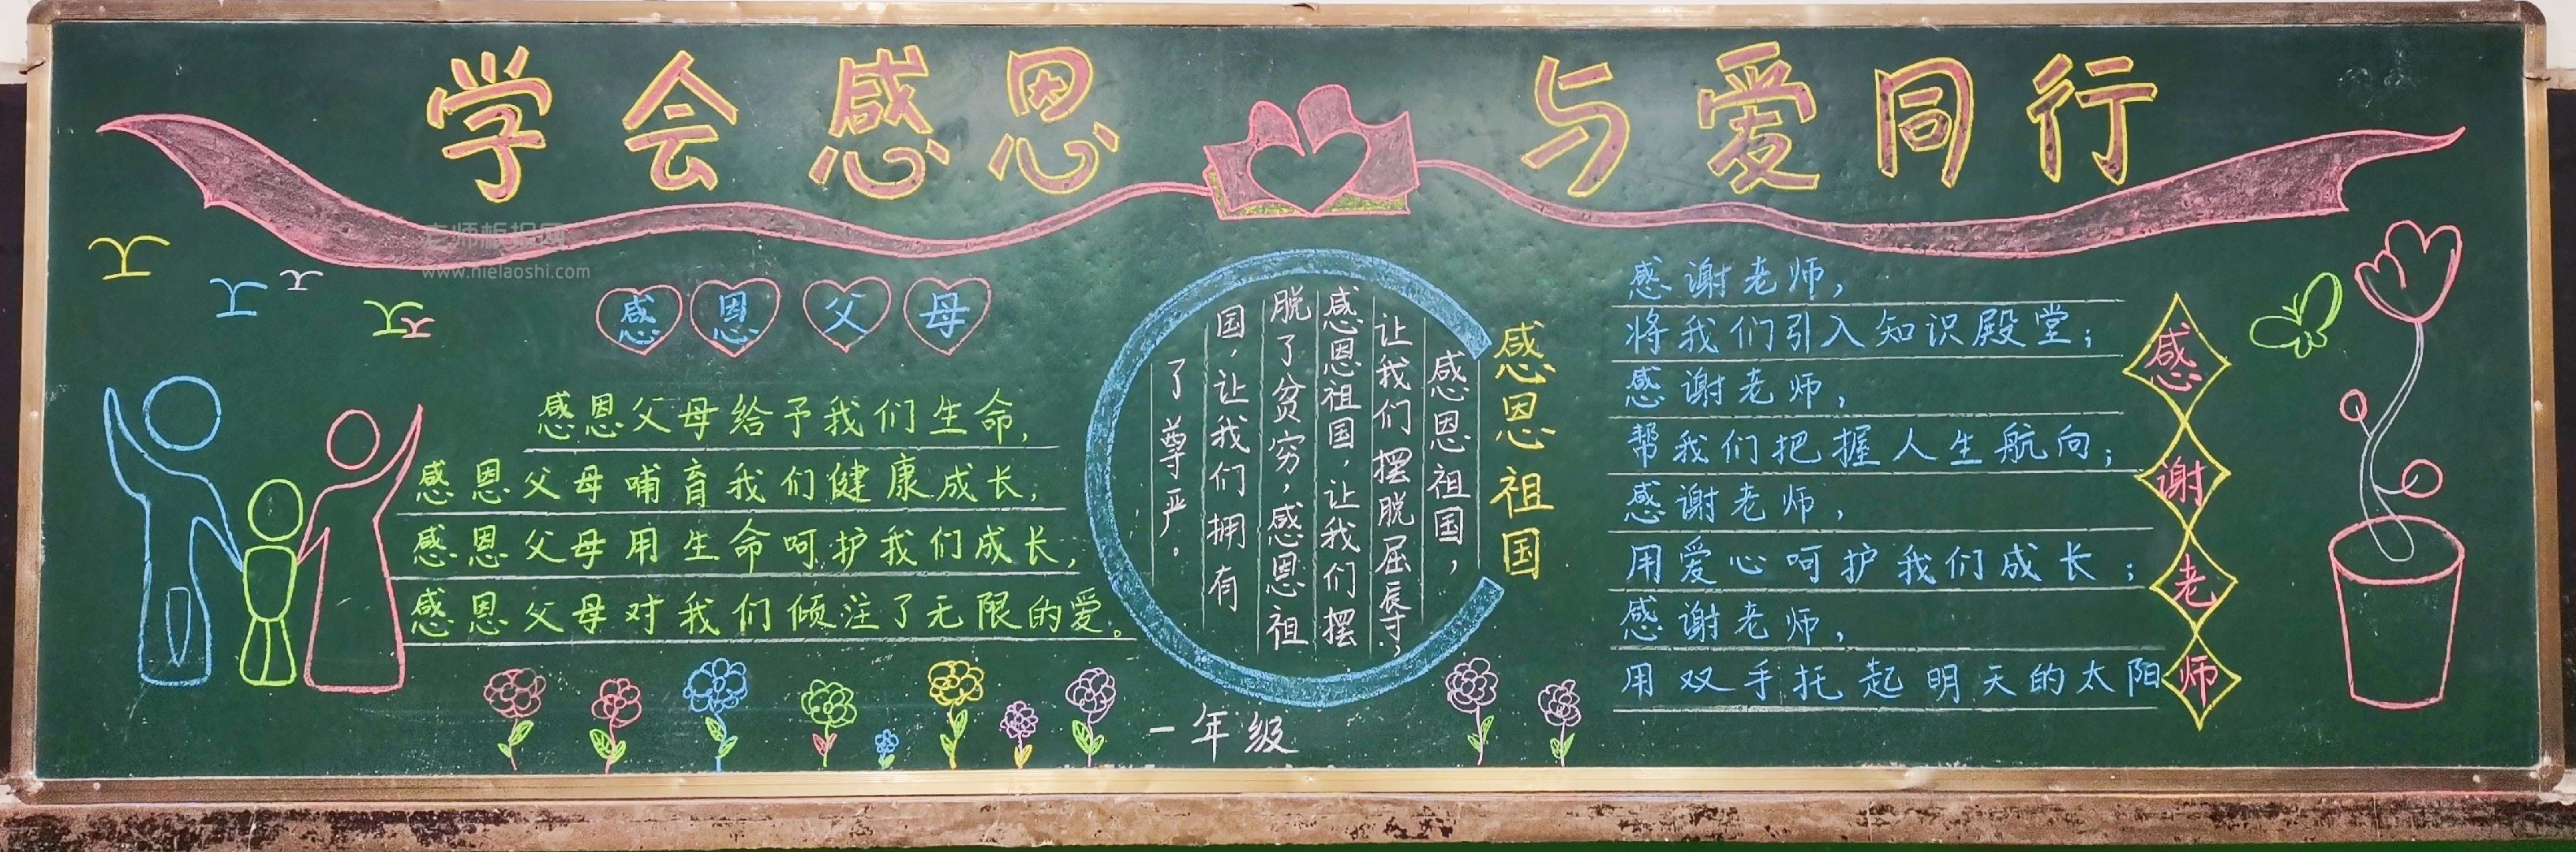 学会感恩 与爱同行
老师板报网
www.nielaoshi.com
感恩父母
感恩父母给予我们生命,
感恩父母哺育我们健康成长,
感恩父母用生命呵护我们成长,
感恩父母对我们倾注了无限的爱。
感恩祖国
感恩祖国,
让我们摆脱屈辱,
感恩祖国,让我们摆
脱了贫穷,感恩祖
国,让我们拥有
了尊严。
感谢老师,
将我们引入知识殿堂;
感谢老师,
帮我们把握人生航向;
感谢老师,
用爱心呵护我们成长;
感谢老师,
用双手托起明天的太阳
感谢老师
一年级